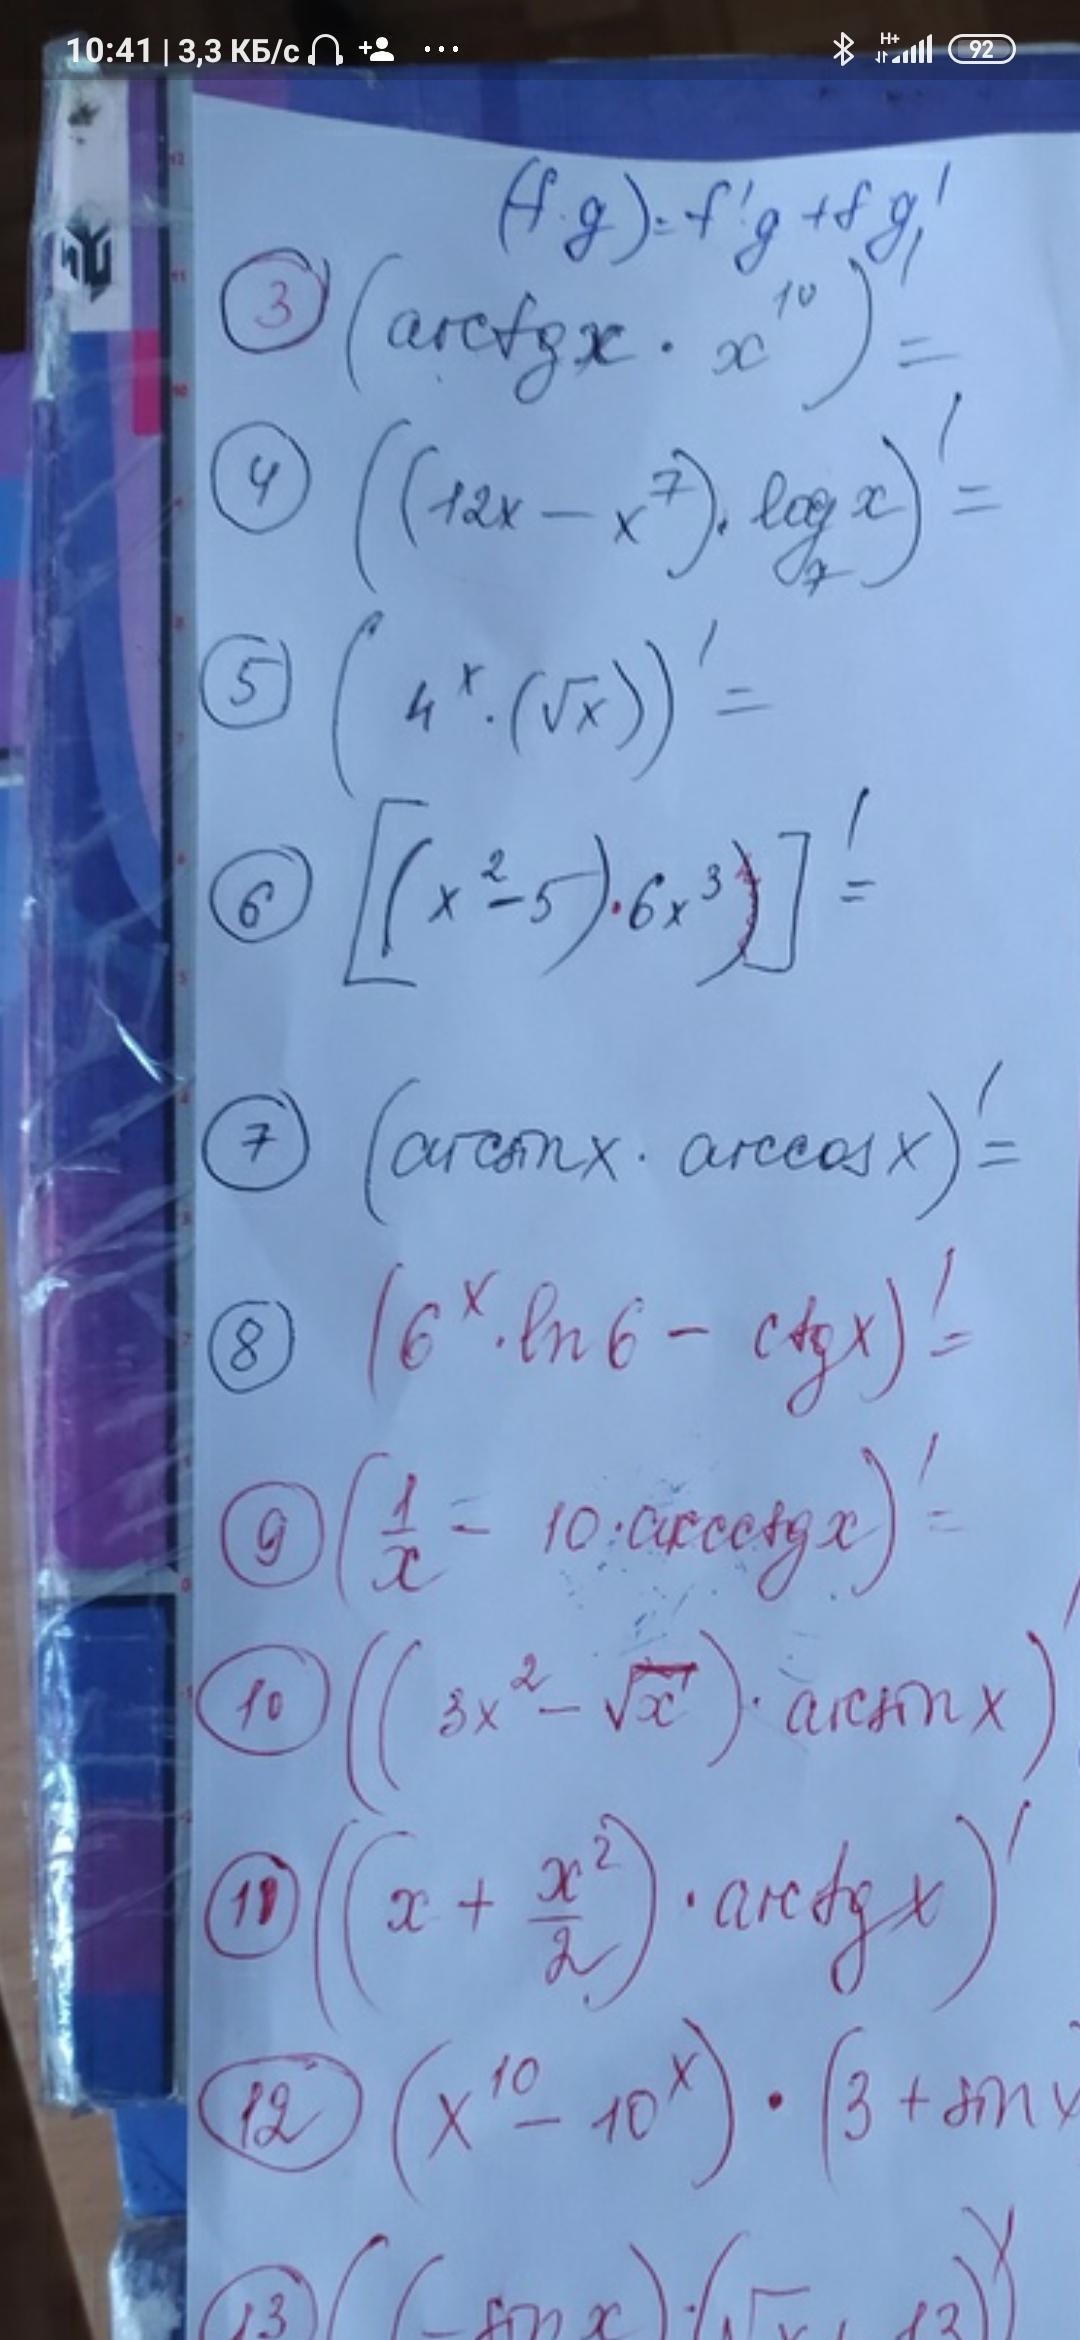 10:41 | 3,3 КБ/с ... H+ 92
(f·g)=f'g+fg'
③ (arctgx · x¹⁰)' =
④ ((12x − x⁷)· log₇x)' =
⑤ (4ˣ·(√x))' =
⑥ [(x²−5)·6x³)]' =
⑦ (arcsinx · arccosx)' =
⑧ (6ˣ·ln6 − ctgx)' =
⑨ (1/x − 10·arcctgx)' =
⑩ ((3x² − √x)· arcsinx)'
⑪ ((x + x²/2)· arctgx)'
⑫ (x¹⁰ − 10ˣ)·(3 + sinx
⑬ ((−sinx)·(√x + 13))'